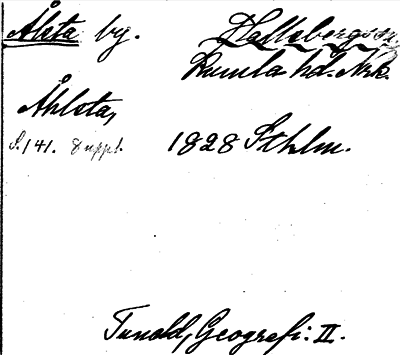 Ålsta by. Hallsbergs sn.
Kumla hd. Nrk.
Åhlsta,
S. 141. Suppl. 1828 Sthlm.
Tuneld, Geografi: II.